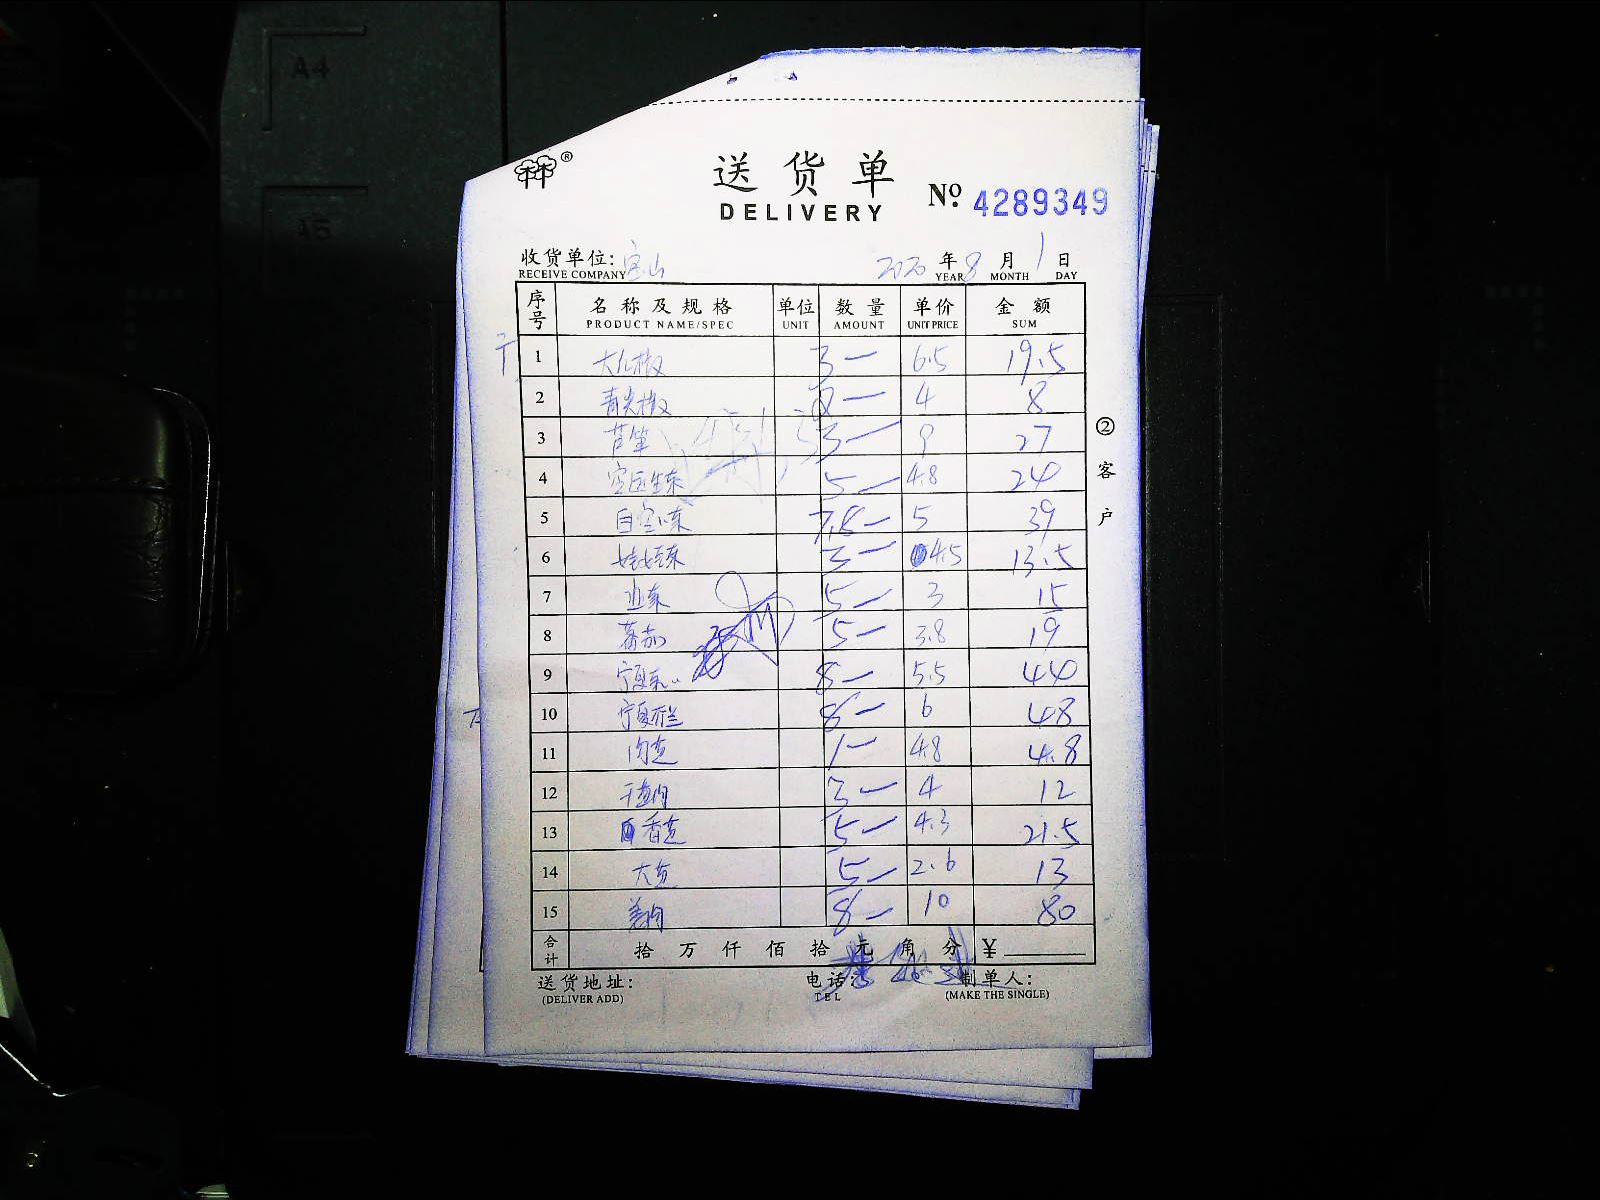 A4
A5
®
送货单
DELIVERY
№ 4289349
收货单位: 宝山 2020 年 8 月 1 日
RECEIVE COMPANY YEAR MONTH DAY
序号 名称及规格 单位 数量 单价 金额
PRODUCT NAME/SPEC UNIT AMOUNT UNIT PRICE SUM
1 3 — 6.5 19.5
2 青尖椒 2 — 4 8
3 芦笋 3 — 9 27
4 5 — 4.8 24
5 7.8 — 5 39
6 3 — 4.5 13.5
7 5 — 3 15
8 番茄 5 — 3.8 19
9 宁夏 8 — 5.5 44
10 宁夏 8 — 6 48
11 1 — 4.8 4.8
12 3 — 4 12
13 香 5 — 4.3 21.5
14 大 5 — 2.6 13
15 8 — 10 80
合计 拾 万 仟 佰 拾 元 角 分 ¥
②客户
送货地址: 电话: 制单人:
(DELIVER ADD) TEL (MAKE THE SINGLE)